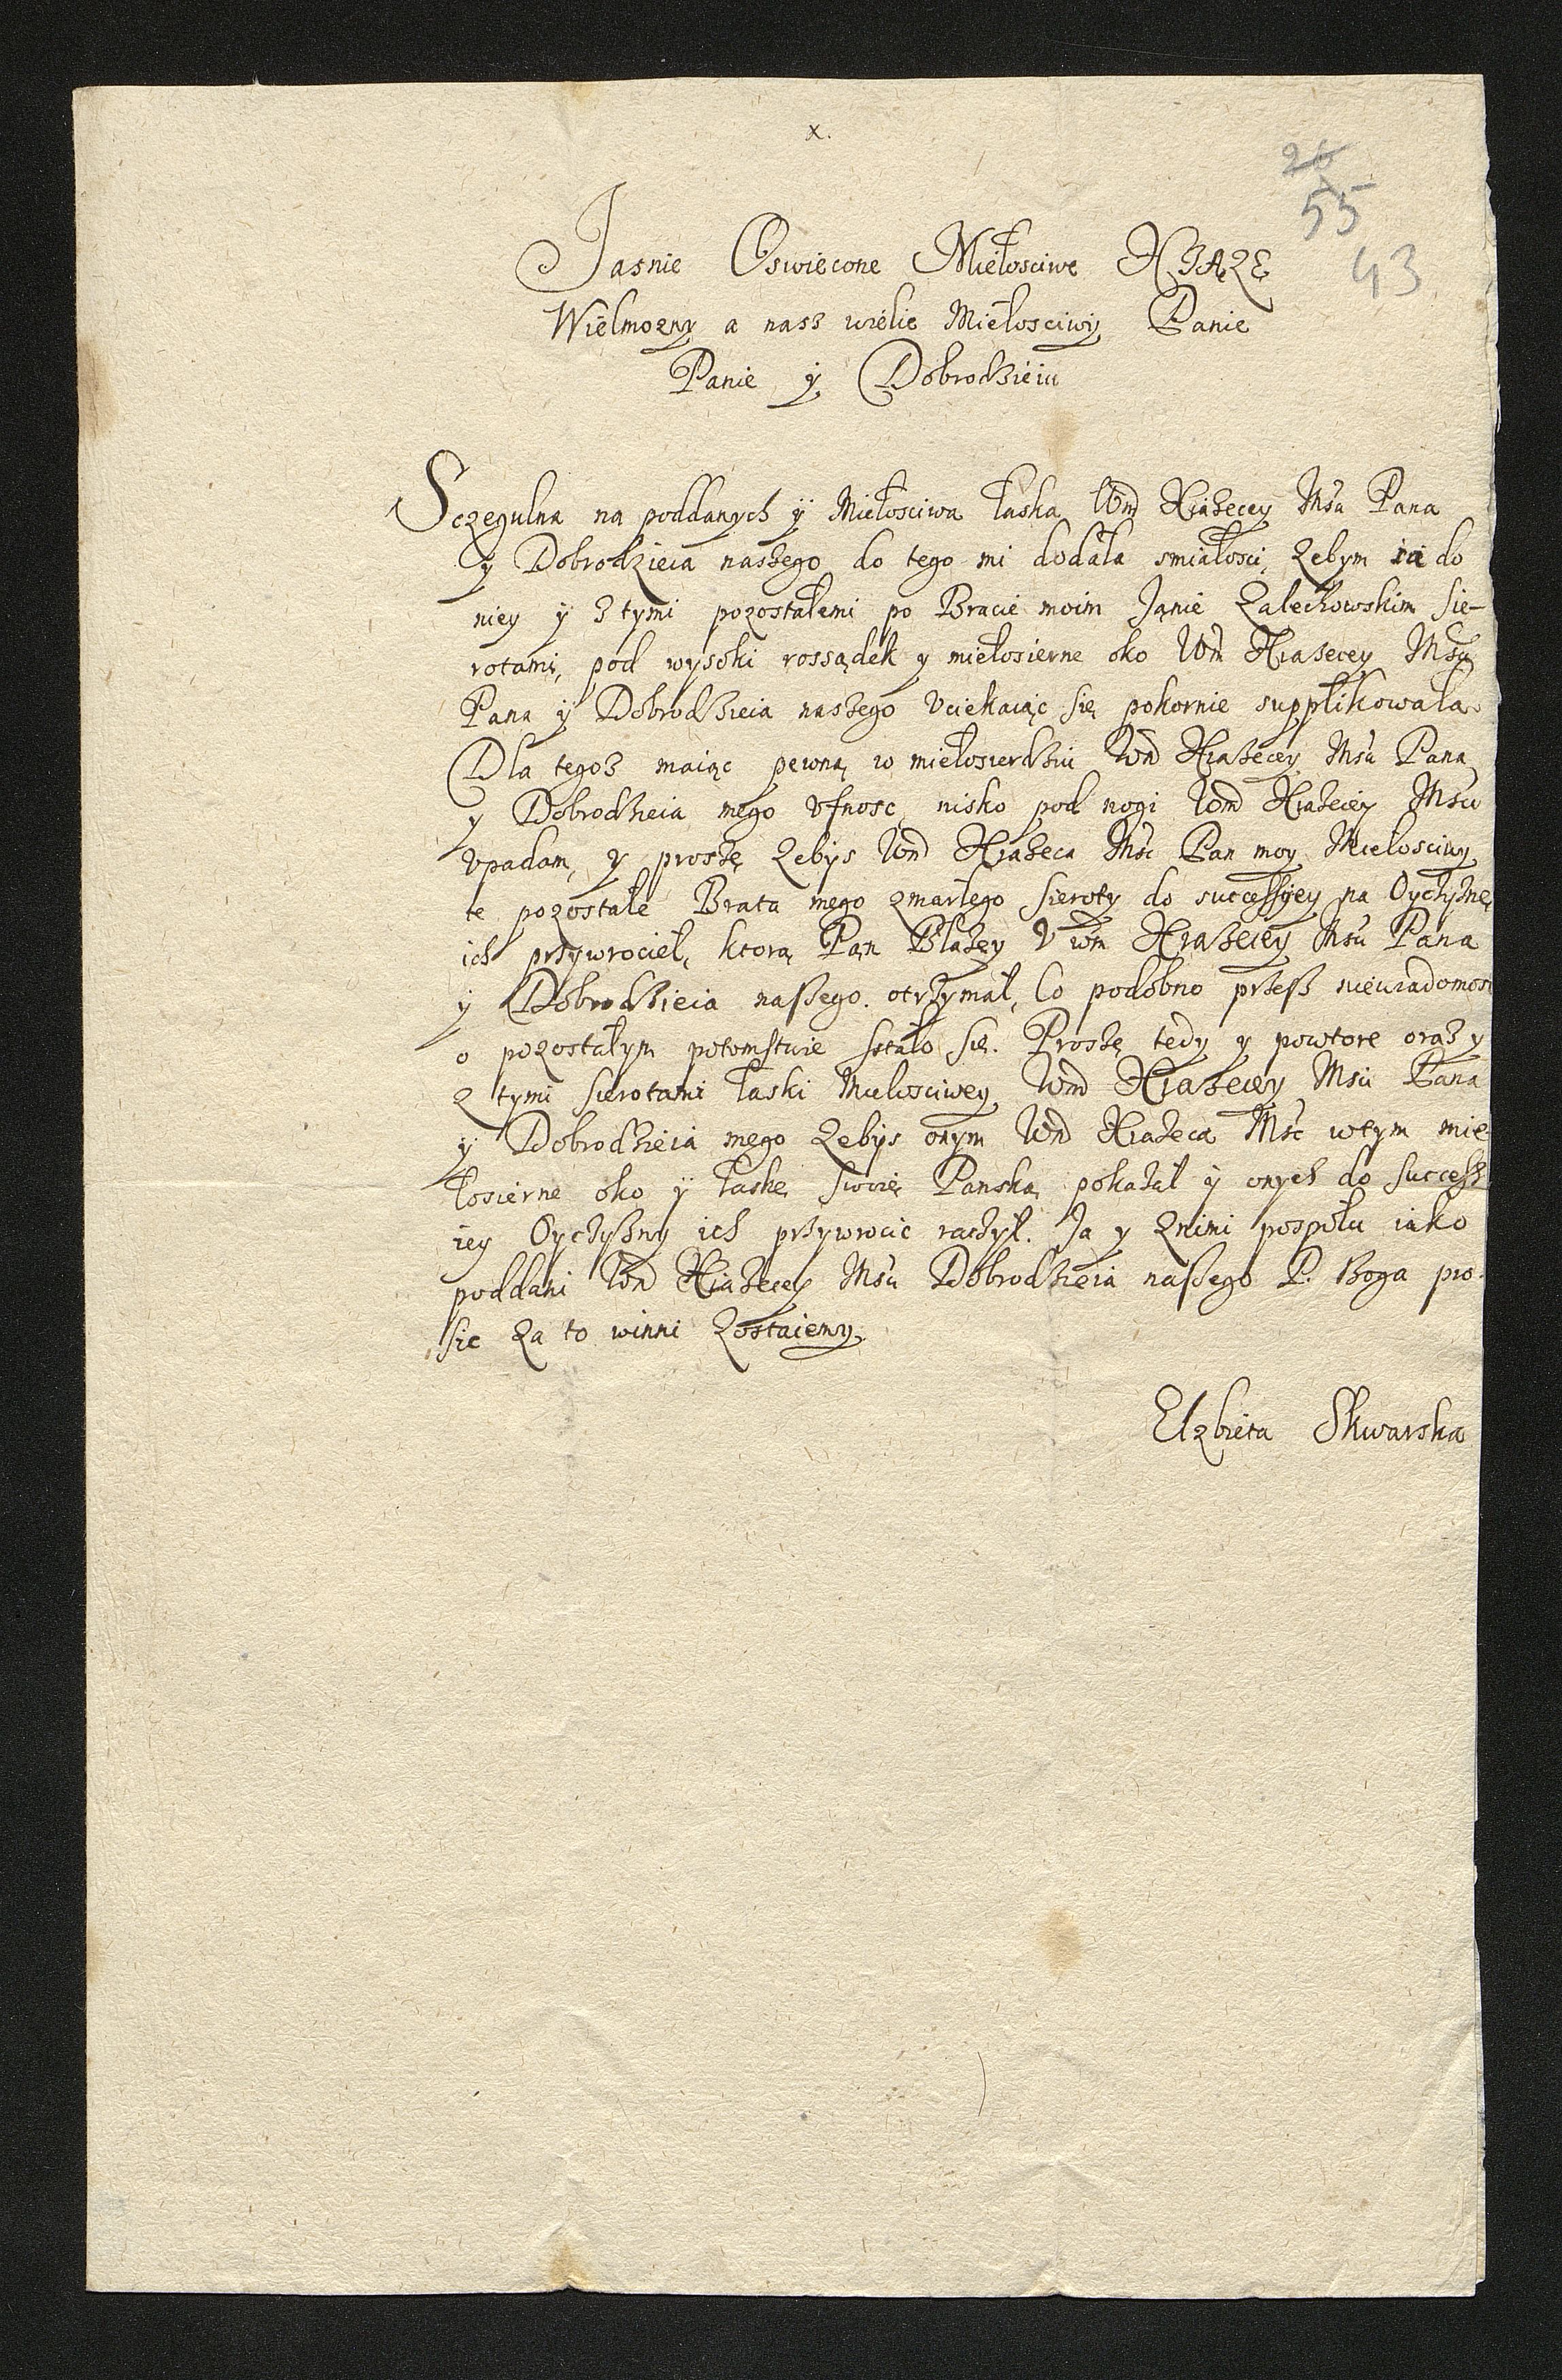 x.
26
55
43
Jasnie Oswiecone Miełosciwe XIĄZE
Wielmozny a nasz wielie Miełosciwy Panie
Panie y Dobrodzieiu
Sczegulna na poddanych y Miełosciwa łaska Wm Xiazecey Msci Pana
y Dobrodzieia naszego do tego mi dodała smiałosci, zebym ia do
niey y z tymi pozostałemi po Bracie moim Janie Zalechowskim sie-
rotami, pod wysoki rossądek y miełosierne oko Wm Xiazecey Msci
Pana y Dobrodzieia naszego vciekaiąc się pokornie supplikowała.
Dla tegoz maiąc pewną w miełosierdziu Wm Xiazecey Msci Pana
y Dobrodzieia mego vfnosc, nisko pod nogi Wm Xiazeciey Msci
vpadam, y proszę zebys Wm Xiazeca Msc Pan moy Miełosciwy
te pozostałe Brata mego zmarłego sieroty do successyey na Oyczyznę
ich przywrocieł, ktorą Pan Błazey v Wm Xiazecey Msci Pana
y Dobrodzieia naszego otrzymał, Co podobno przesz niewiadomosc
o pozostałym potomstwie sstało się. Proszę tedy y powtore oraz y
z tymi sierotami łaski Miełosciwey Wm Xiazecey Msci Pana
y Dobrodzieia mego zebys onym Wm Xiazeca Msc wtym mie
łosierne oko y łaskę swoię Panską pokazał y onych do success
iey Oyczyzny ich przywrocic raczył. Ja y znimi pospołu iako
poddani Wm Xiazecey Msci Dobrodzieia naszego P. Boga pro-
sic za to winni zostaiemy.
Elzbieta Skwarska